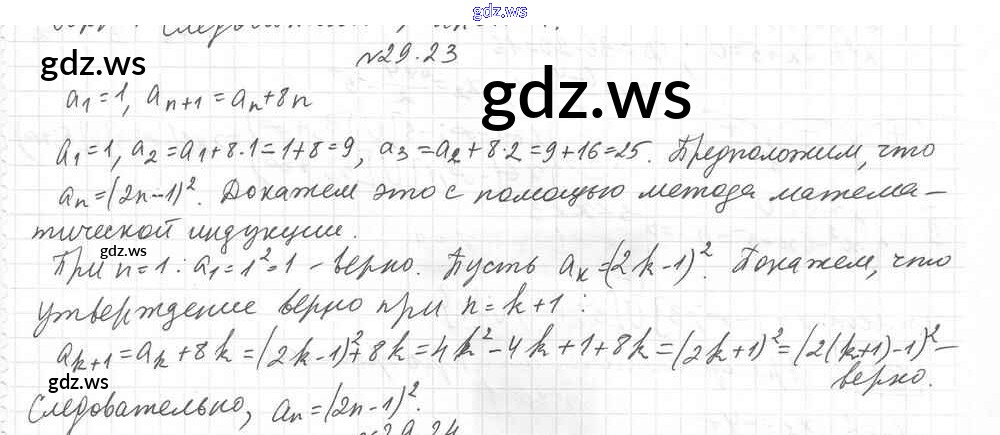 gdz.ws
Следовательно,
№29.23
gdz.ws
gdz.ws
a₁=1, aₙ₊₁=aₙ+8n
a₁=1, a₂=a₁+8·1=1+8=9, a₃=a₂+8·2=9+16=25. Предположим, что
aₙ=(2n-1)². Докажем это с помощью метода матема-
тической индукции.
gdz.ws
При n=1: a₁=1²=1 - верно. Пусть aₖ=(2k-1)². Покажем, что
утверждение верно при n=k+1:
aₖ₊₁=aₖ+8k=(2k-1)²+8k=4k²-4k+1+8k=(2k+1)²=(2(k+1)-1)²-
верно.
gdz.ws
Следовательно, aₙ=(2n-1)².
№29.24